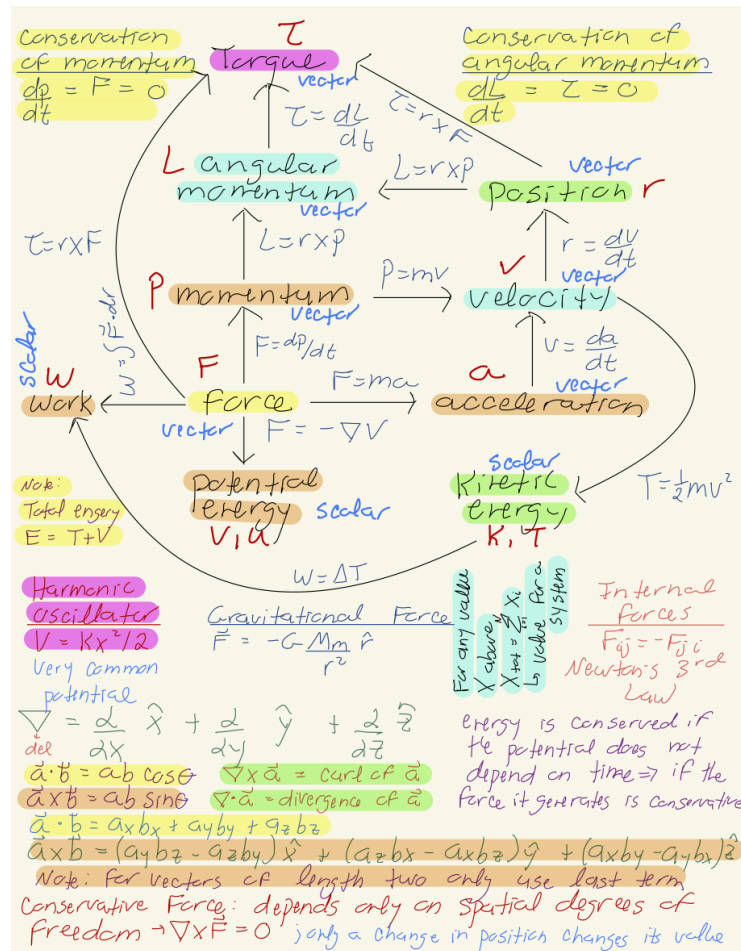 Conservation
of momentum
dp/dt = F = 0
τ
Torque
vector
Conservation of
angular momentum
dL/dt = τ = 0
τ = dL/dt
τ=r×F
L angular
momentum
vector
L=r×p
vector
position r
τ=r×F
L=r×p
r = dv/dt
P momentum
vector
P=mv
v
vector
velocity
W=∫F⃗·dr
F=dp/dt
v = da/dt
scalar
W
work
F
force
vector
F=ma
a
vector
acceleration
F = -∇V
potential
energy
scalar
V, U
scalar
kinetic
energy
K, T
T=½mv²
Note:
Total engery
E = T+V
W=ΔT
Harmonic
oscillator
V = Kx²/2
very common
potential
Gravitational Force
F⃗ = -G Mm/r² r̂
For any value
X above,
X tot = Σ i=1 N Xi
↳ value for a
system
Internal
forces
Fij = -Fji
Newton's 3rd
Law
∇ = d/dx x̂ + d/dy ŷ + d/dz ẑ
del
a⃗·b⃗ = ab cosθ
∇×a⃗ = curl of a⃗
a⃗×b⃗ = ab sinθ
∇·a⃗ = divergence of a⃗
energy is conserved if
the potential does not
depend on time ⇒ if the
force it generates is conservative
a⃗·b⃗ = axbx + ayby + azbz
a⃗×b⃗ = (aybz - azby)x̂ + (azbx - axbz)ŷ + (axby - aybx)ẑ
Note: For vectors of length two only use last term
Conservative Force: depends only on spatial degrees of
freedom → ∇×F⃗ = 0 ; only a change in position changes its value